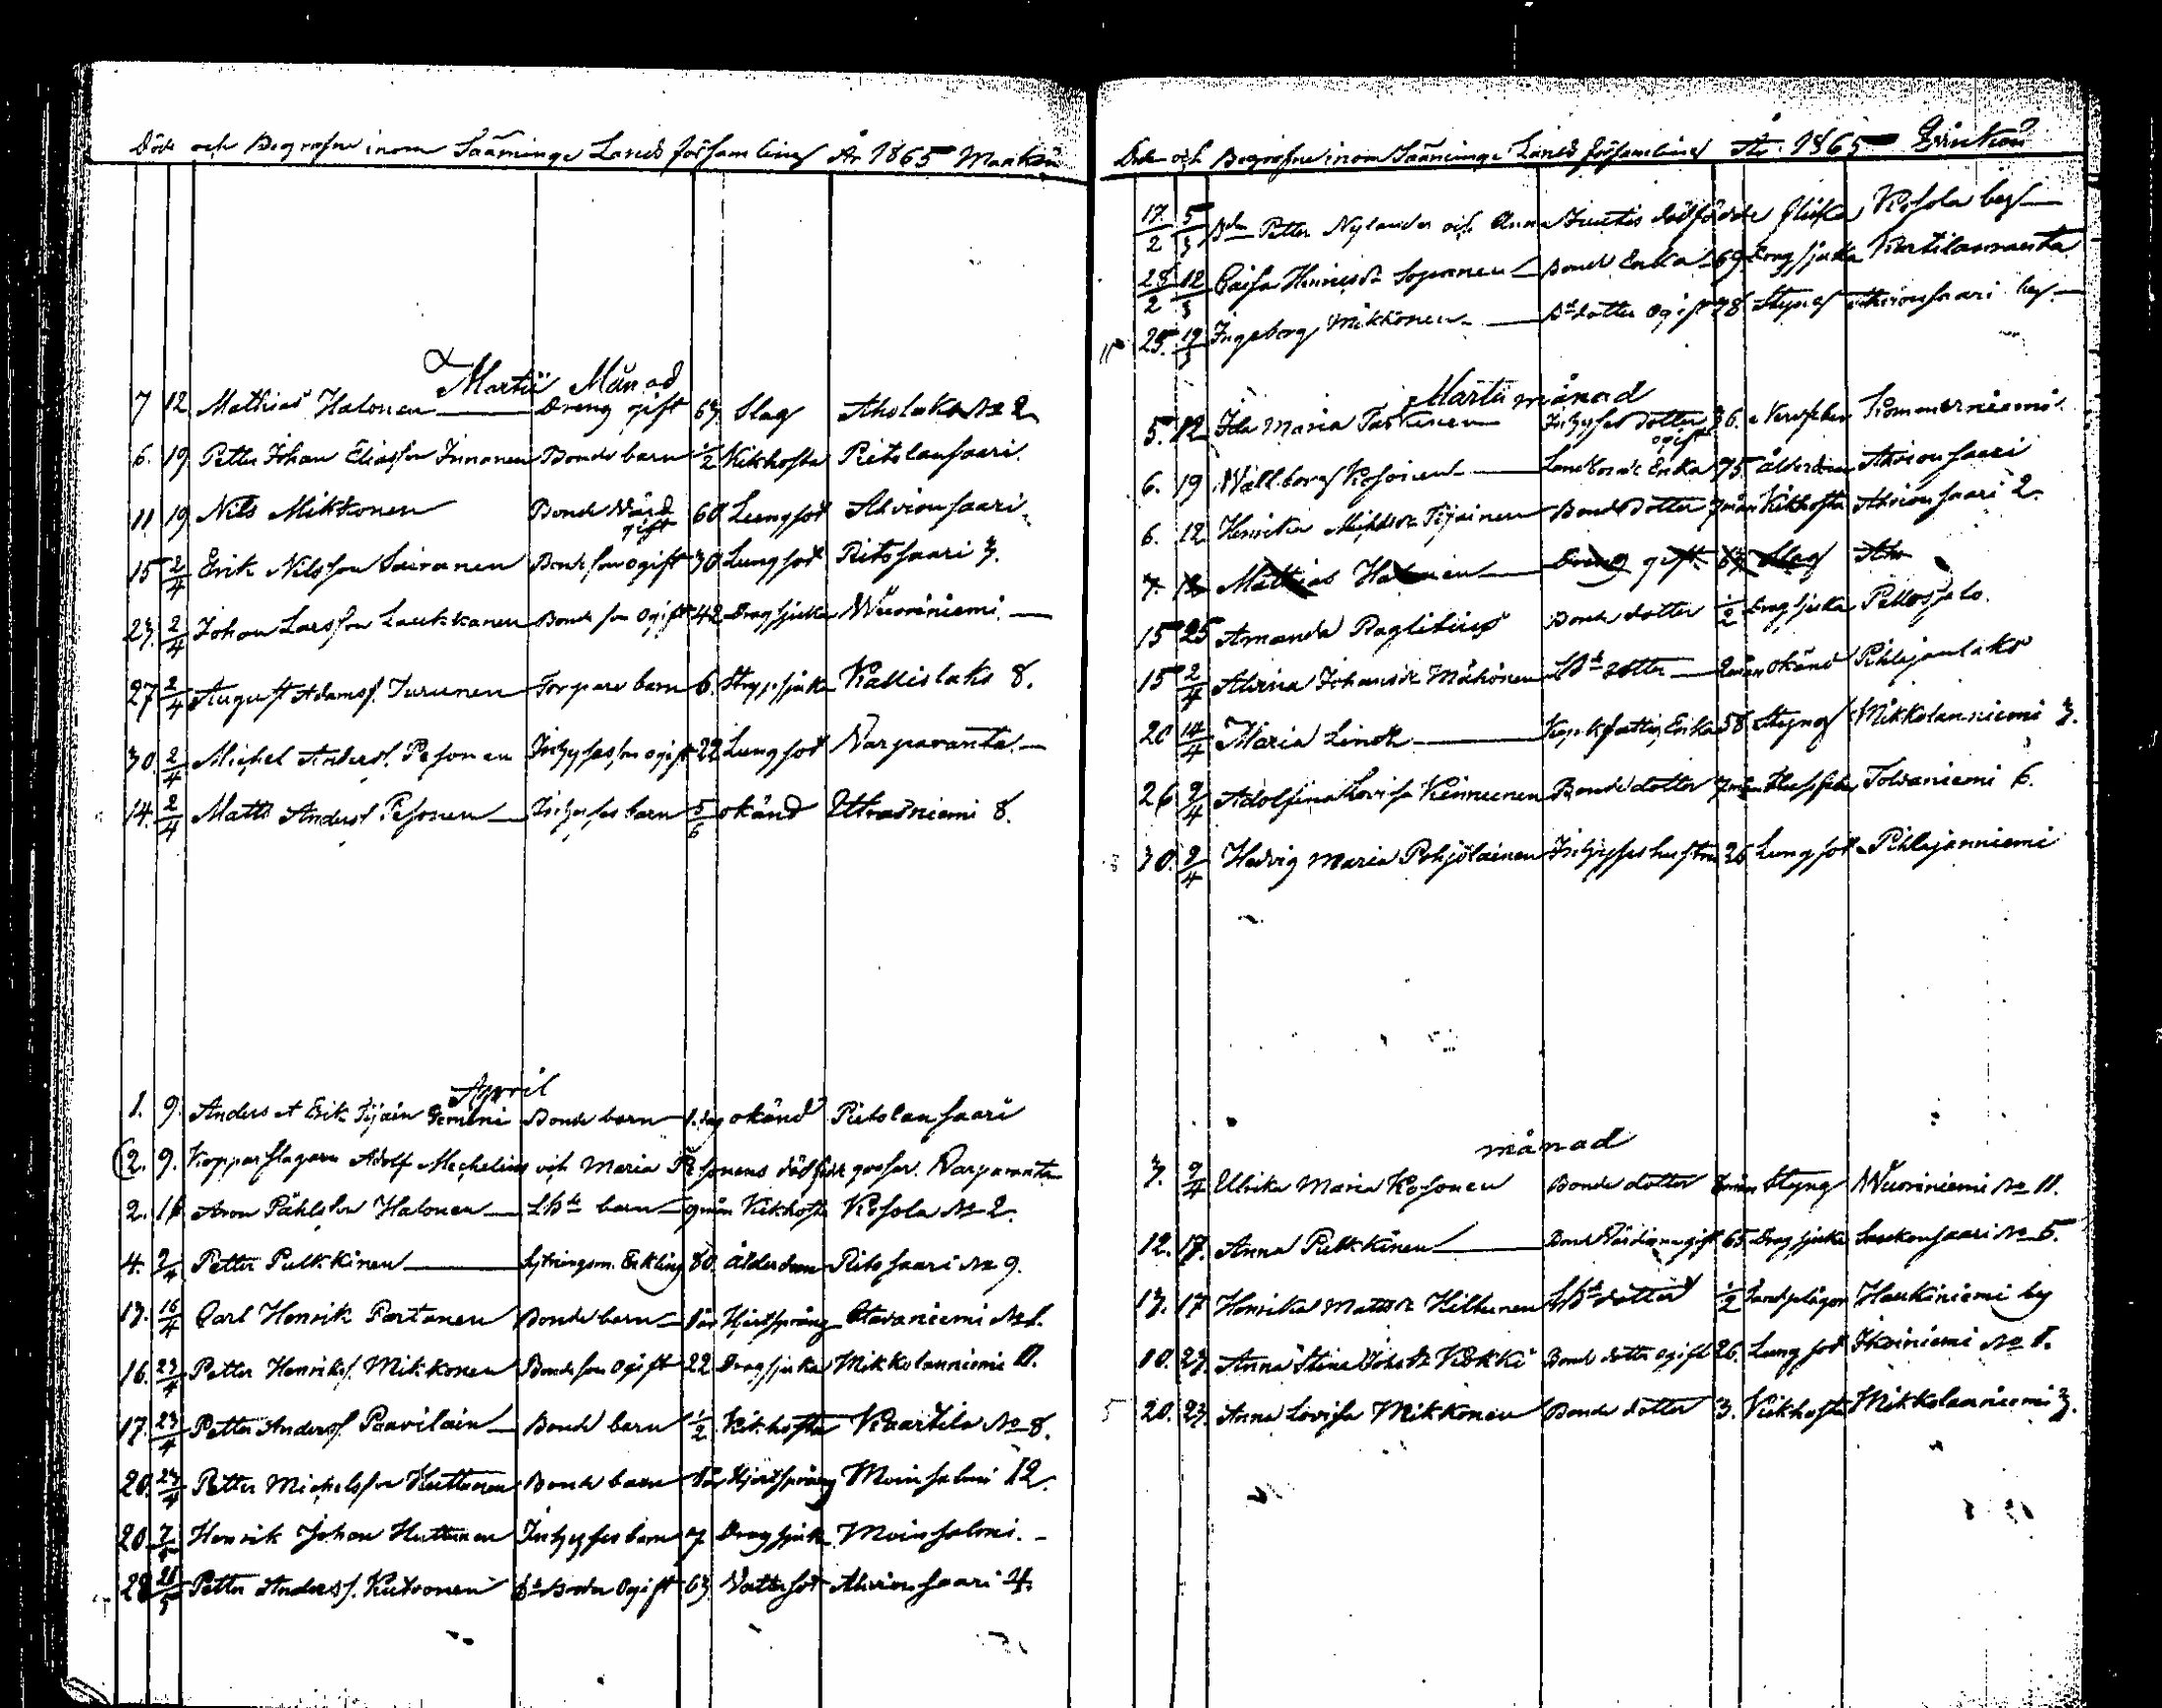 Döde och Begrafne inom Sääminge Lands församling År 1865 Mankön
Martii Månad
7 12 Mathias Halonen Dreng gift 63 Slag Aholaks No 2
6. 19 Petter Johan Eliasson Innanen Bonde barn 1/2 Kikhosta Pietolansaari.
11 19 Nils Mikkonen Bonde Värd gift 60 Lungsot Ahvionsaari
15 2/4 Erik Nilsson Sairanen Bonde son ogift 30 Lungsot Ritosaari 3.
23. 2/4 Johan Larsson Laukkanen Bonde son Ogift 42 Dragsjuka Wuoriniemi.
27 2/4 August Adamss. Turunen Torpare barn 6. Strypsjuka Kallislaks 8.
30. 2/4 Michel Anderss. Pesonen Inhyses son ogift 22 Lungsot Varparanta.
14. 2/4 Matts Anderss Pesonen Inhyses barn 5/6 okänd Utrasniemi 8.
April
1. 9. Anders et Erik Tijain Gemini Bonde barn 1. dag okänd Pietolansaari
2. 9. Kopparslagaren Adolf Mechelins och Maria Pesonens dödfödde gosse. Varparanta
2. 16 Aron Påhlsson Halonen LBde barn 9 mån Kikhosta Kosola No 2.
4. 2/4 Petter Pulkkinen Sytningsm. Enkling 80. Ålderdom Ritosaari No 9.
13. 16/4 Carl Henrik Partanen Bonde barn 1 år Hjertsprång Otavaniemi No 1.
16. 23/4 Petter Henrikss. Mikkonen Bonde son Ogift 22 Dragsjuka Mikkolanniemi 11.
17. 23/4 Petter Anderss. Paavilain Bonde barn 1/2 Kikhosta Kaartila No 8.
20. 23/4 Petter Michelsson Huttunen Bonde barn 1 år Hjertsprång Moinsalmi 12.
20 7/5 Henrik Johan Huttunen Inhyses barn 7 Dragsjuka Moinsalmi.
28 21/5 Petter Anderss. Kutvonen Bds Broder Ogift 63. Vattusot Ahvionsaari 4.
Döde och Begrafne inom Sääminge Lands församling År 1865 Qvinkön
17./2 5/3 Bden Petter Nylander och Anna Juutis dödfödde flicka Kosola by
28/2 12/3 Caisa Henricsdr Soponen Bonde Enka 69 Dragsjuka Kartilanranta
25. 19/3 Ingeborg Mikkonen Bds dotter Ogift 78 Styng Ahvionsaari by.
Martii månad
5. 12 Ida Maria Taskinen Inhyses Dotter ogift 36. Nervfeber Kommerniemi.
6. 19 Wallborg Kosonen Landbonde Enka 75. Ålderdom Ahvionsaari
6. 12 Henrika Michelsdr Tijainen Bonde Dotter 7 mån Kikhosta Ahvionsaari 2.
7. 12 Mathias Halonen Dreng gift 63 Slag Aho
15 25 Amanda Paglitius Bonde dotter 1/2 Dragsjuka Pellossalo.
15 2/4 Alvina Johansdr Måhönen LBds dotter 2 mån okänd Pihlajanlaks
20 14/4 Maria Lindh Kyrkfattig Enka 58 Styng Mikkolanniemi 3.
26 2/4 Adolfina Lovisa Kinnunen Bonde dotter 7 mån Slussfeber Tolvaniemi 6.
30. 2/4 Hedvig Maria Pohjolainen Inhyses hustru 26 Lungsot Pihlajanniemi
månad
3. 9/4 Ulrika Maria Kosonen Bonde dotter mån Styng Wuoriniemi No 11.
12. 17. Anna Pulkkinen Bonde Värdinna gift 65 Dragsjuka Laukansaari No 5.
13. 17 Henrika Mattsdr Hiltunen LBds dotter 1/2 Haukiniemi by
10. 23. Anna Stina Johsdr Kokki Bonde dotter ogift 26. Lungsot Ikoiniemi No 1.
20. 23. Anna Lovisa Mikkonen Bonde dotter 3. Kikhosta Mikkolanniemi 3.